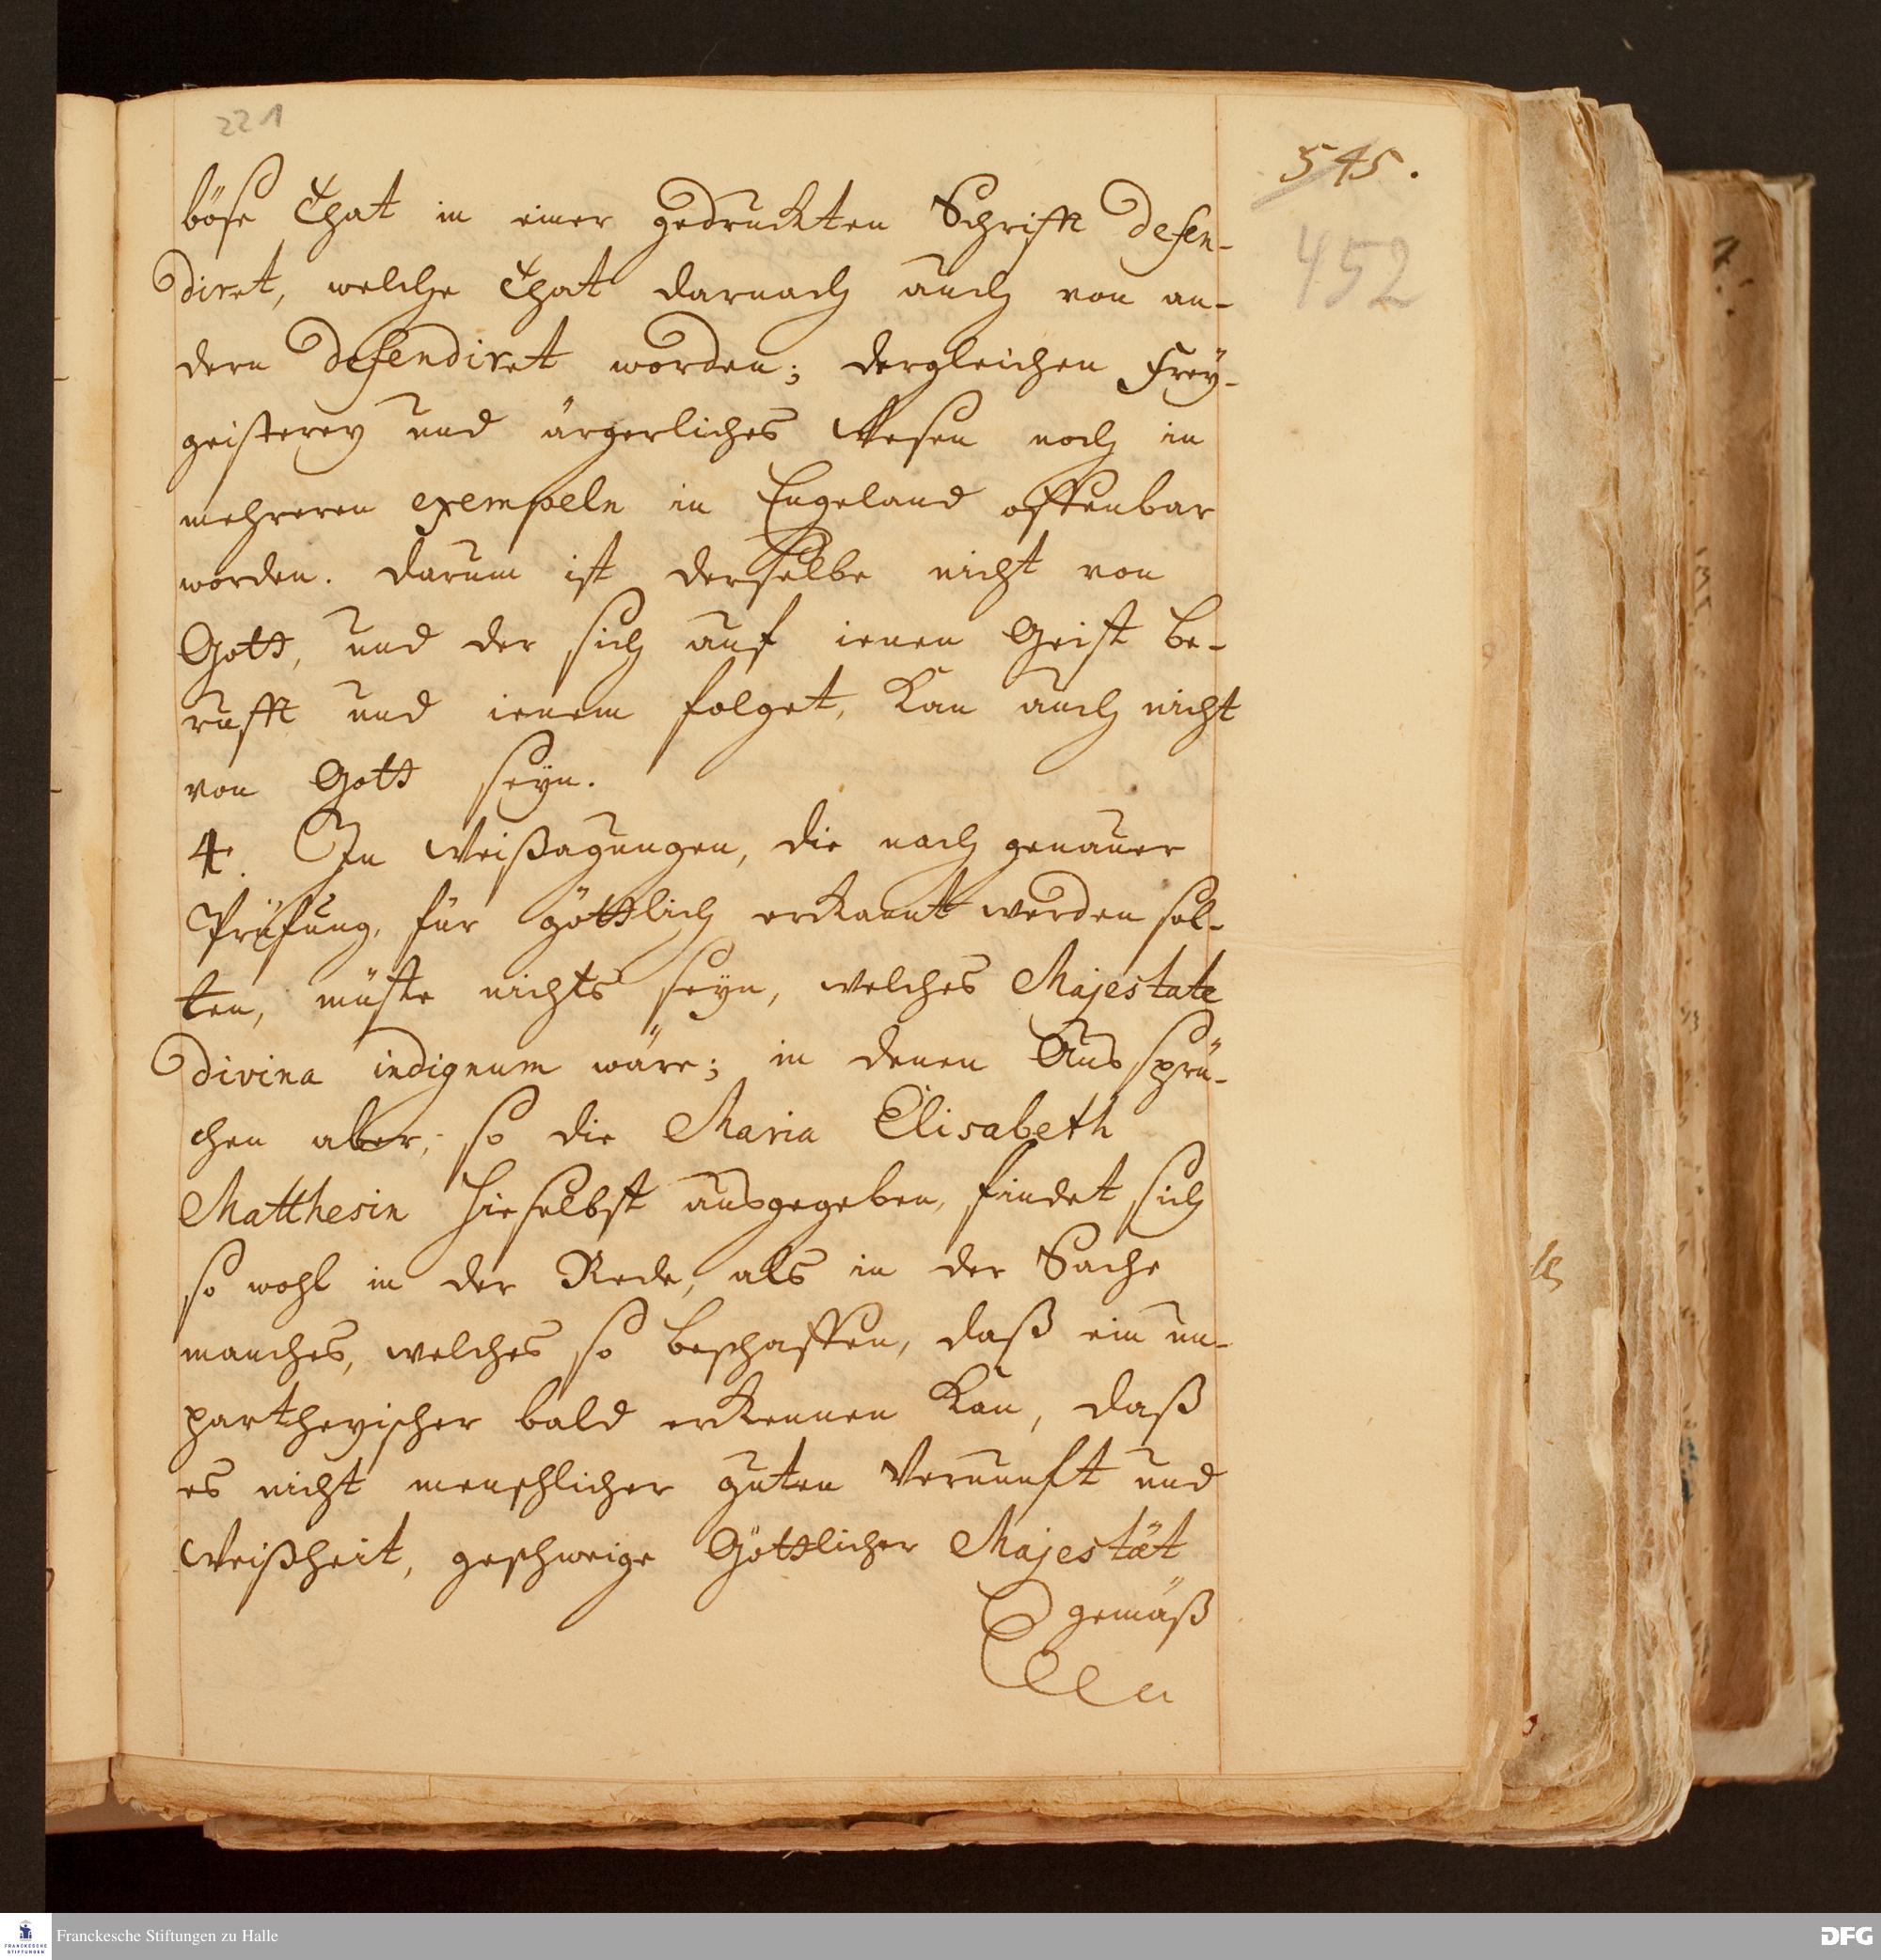 221
545.
452
böse That in einer gedruckten Schrifft defen-
diret, welche That darnach auch von an-
dern defendiret worden; dergleichen Frey-
geisterey und ärgerliches Wesen noch in
mehreren exempeln in Engeland offenbar
worden. Darum ist derselbe nicht von
Gott, und der sich auf ienen Geist be-
rufft und ienem folget, kan auch nicht
von Gott seyn.
4. In Weißagungen, die nach genauer
Prüfung, für göttlich erkannt werden sol-
ten, müste nichts seyn, welches Majestate
divina indignum wäre; in denen Aussprü-
chen aber, so die Maria Elisabeth
Matthesin hieselbst ausgegeben, findet sich
so wohl in der Rede, als in der Sache
manches, welches so beschaffen, daß ein un-
partheyischer bald erkennen kan, daß
es nicht menschlicher guten Vernunft und
Weißheit, geschweige Göttlicher Majestät
gemäß
Franckesche Stiftungen zu Halle
FRANCKESCHE
STIFTUNGEN
DFG